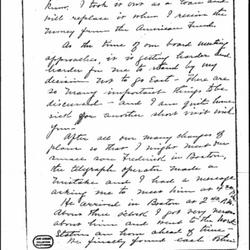 know. I took it out as a loan and
will replace it when I receive the
money from the American Fund.
As the time of our board meeting
approaches, it is getting harder and
harder for me to stand by my
decision not to go East - there are
so many important things to be
discussed - and I am quite home
sick for another short visit with
you.
After all our many changes of
plans so that I might meet our
Frederick in Boston,
the telegraph operator made a
mistake and I had a message
asking me to meet him at
He arrived in Boston at
About three o'clock I got very
about him and
at of time -
We finally found each